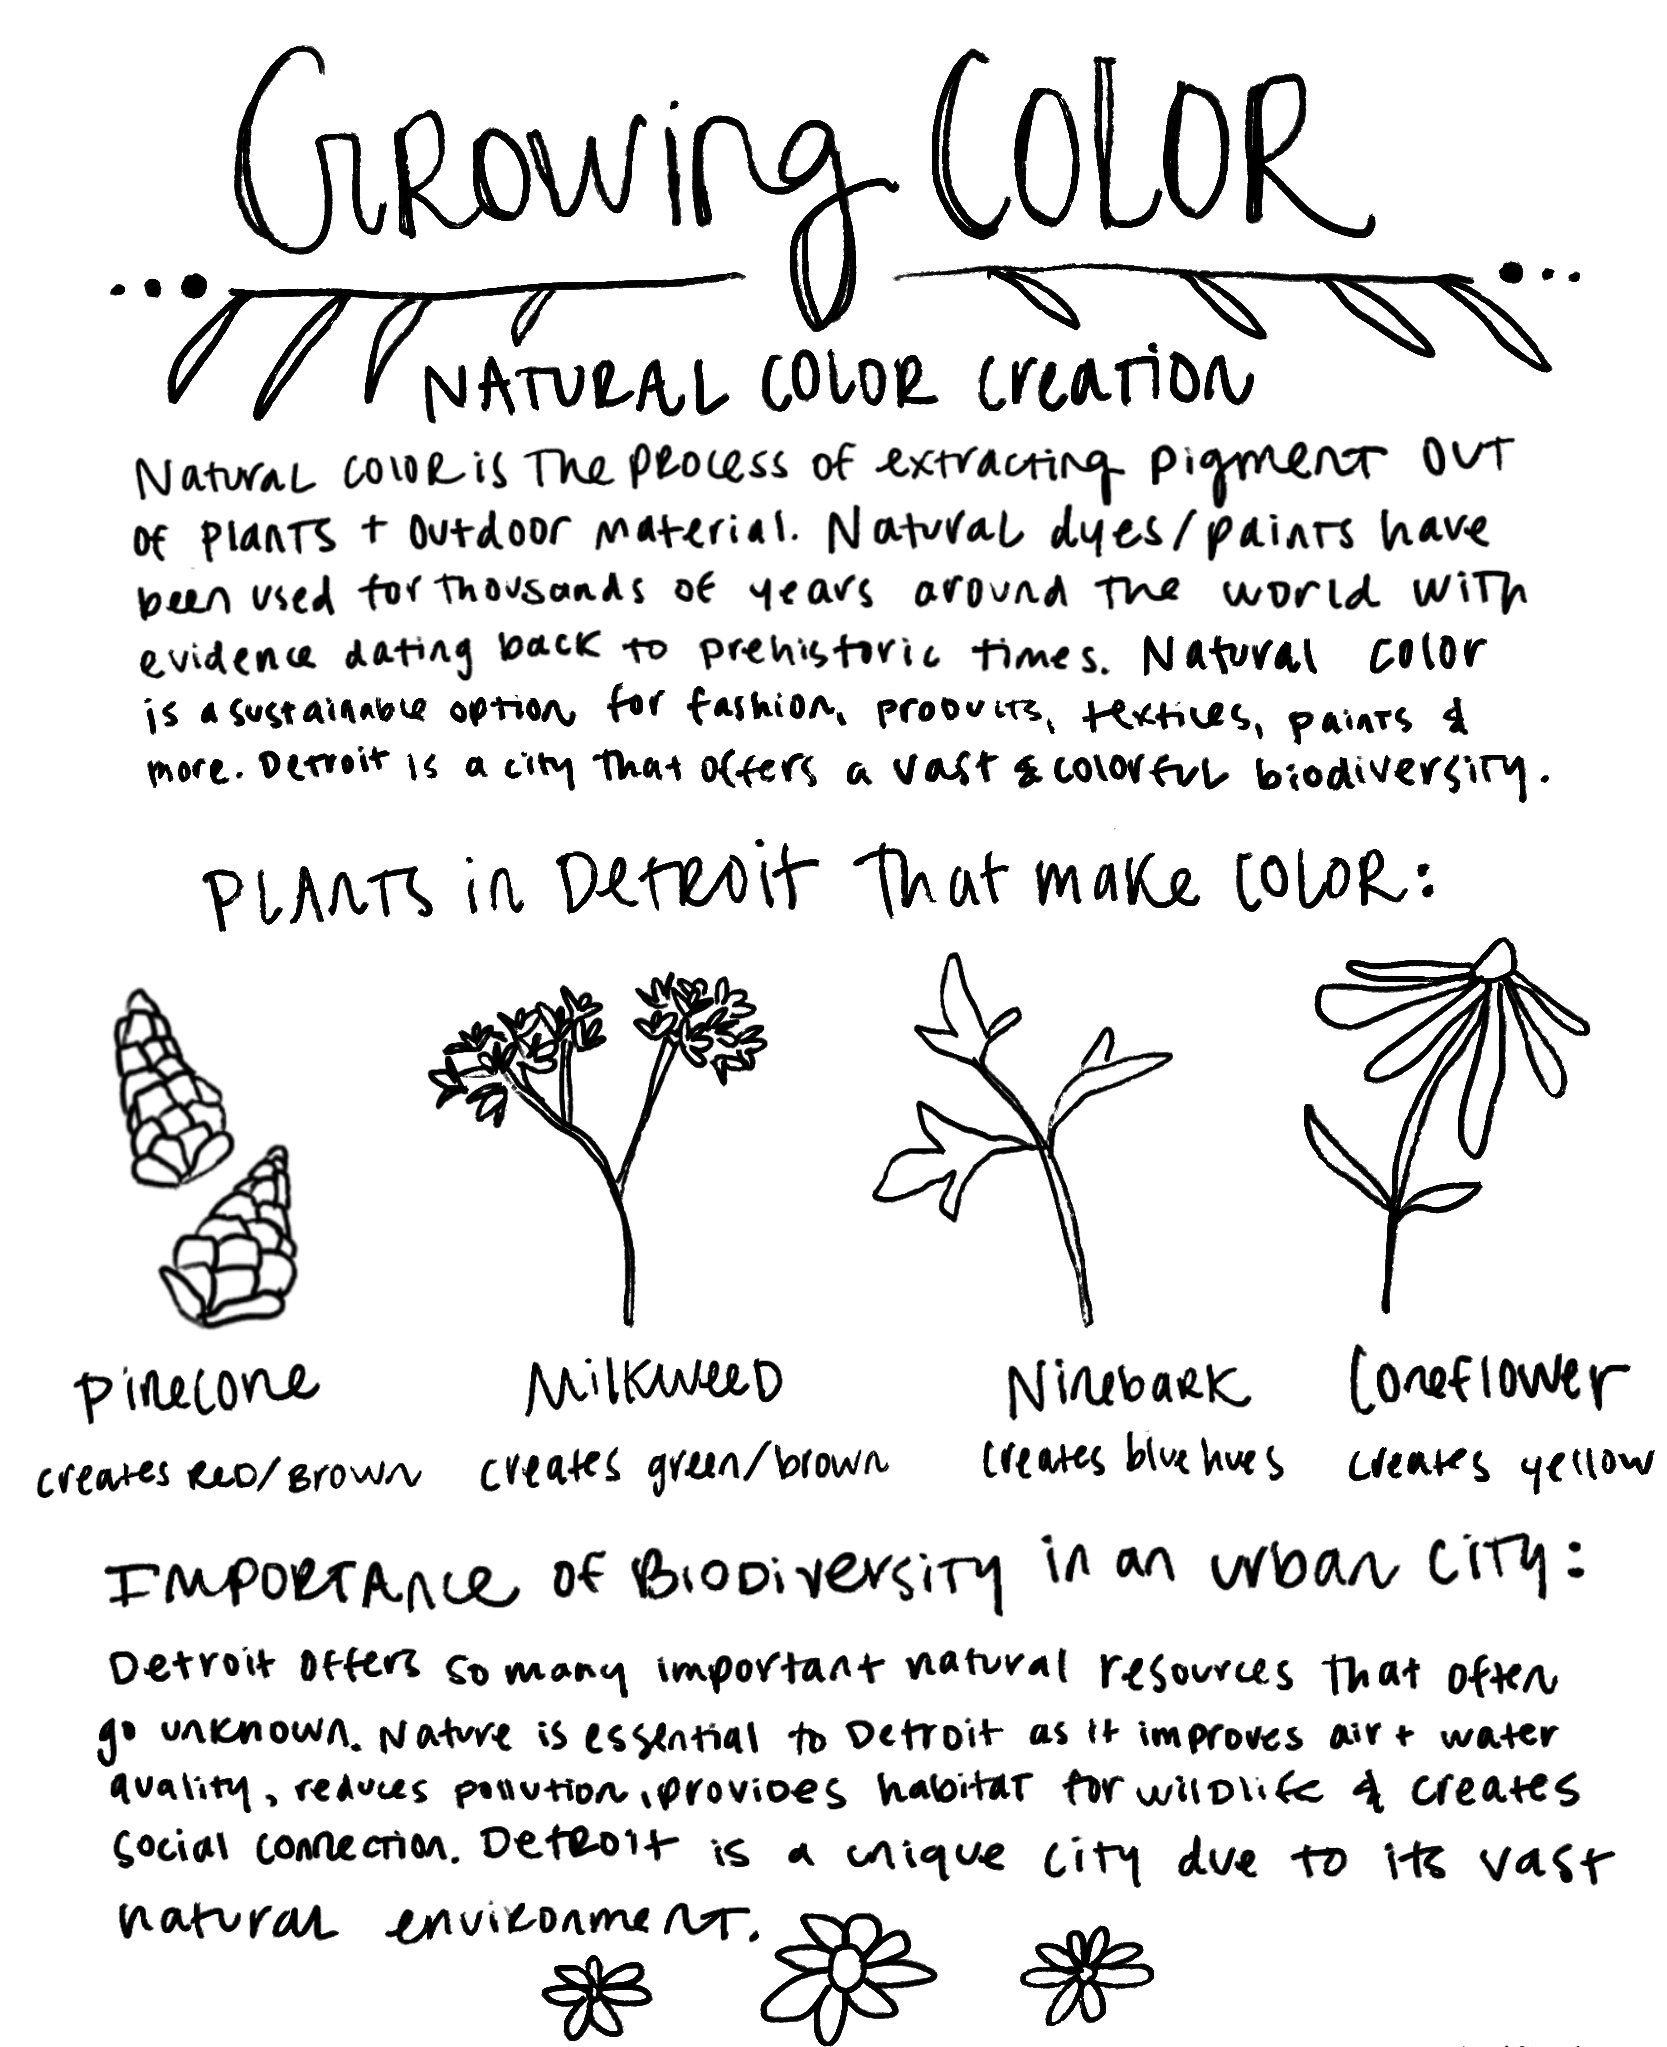 Growing Color
Natural Color Creation
Natural color is the process of extracting pigment out
of plants + outdoor material. Natural dyes/paints have
been used for thousands of years around the world with
evidence dating back to prehistoric times. Natural color
is a sustainable option for fashion, products, textiles, paints &
more. Detroit is a city that offers a vast & colorful biodiversity.
Plants in Detroit that make color:
Pinecone Milkweed Ninebark Coneflower
creates red/brown creates green/brown creates blue hues creates yellow
Importance of Biodiversity in an urban city:
Detroit offers so many important natural resources that often
go unknown. Nature is essential to Detroit as it improves air + water
quality, reduces pollution, provides habitat for wildlife & creates
social connection. Detroit is a unique city due to its vast
natural environment.